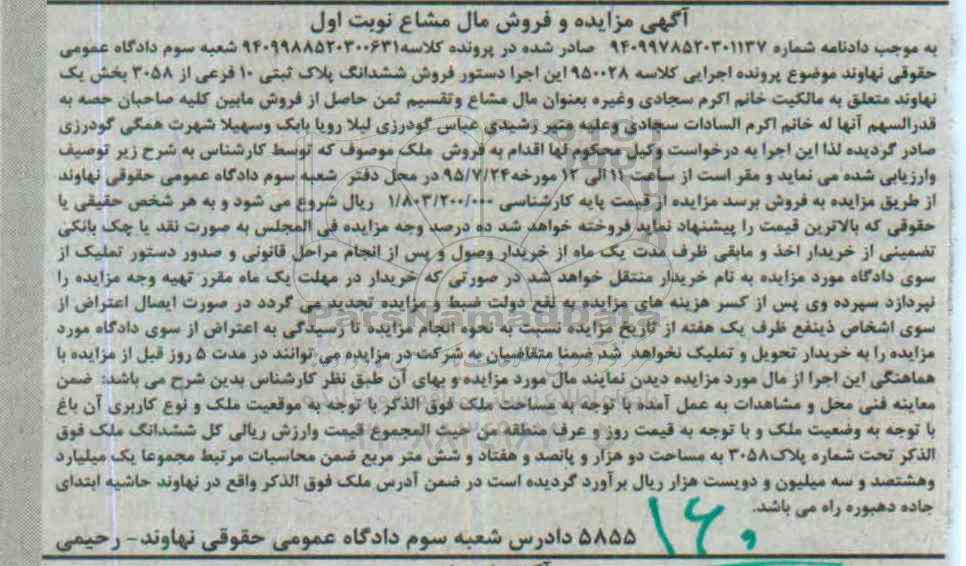 آگهی مزایده و فروش مال مشاع نوبت اول
به موجب دادنامه شماره ۹۴۰۹۹۷۸۵۲۰۳۰۱۱۳۷ صادر شده در پرونده کلاسه۹۴۰۹۹۸۸۵۲۰۳۰۰۶۳۱ شعبه سوم دادگاه عمومی
حقوقی نهاوند موضوع پرونده اجرایی کلاسه ۹۵۰۰۲۸ این اجرا دستور فروش ششدانگ پلاک ثبتی ۱۰ فرعی از ۳۰۵۸ بخش یک
نهاوند متعلق به مالکیت خانم اکرم سجادی وغیره بعنوان مال مشاع وتقسیم ثمن حاصل از فروش مابین کلیه صاحبان حصه به
قدرالسهم آنها له خانم اکرم السادات سجادی وعلیه منیر رشیدی عباس گودرزی لیلا رویا بابک وسهیلا شهرت همگی گودرزی
صادر گردیده لذا این اجرا به درخواست وکیل محکوم لها اقدام به فروش ملک موصوف که توسط کارشناس به شرح زیر توصیف
وارزیابی شده می نماید و مقر است از ساعت ۱۱ الی ۱۲ مورخه۹۵/۷/۲۴ در محل دفتر شعبه سوم دادگاه عمومی حقوقی نهاوند
از طریق مزایده به فروش برسد مزایده از قیمت پایه کارشناسی ۱/۸۰۳/۲۰۰/۰۰۰ ریال شروع می شود و به هر شخص حقیقی یا
حقوقی که بالاترین قیمت را پیشنهاد نماید فروخته خواهد شد ده درصد وجه مزایده فی المجلس به صورت نقد یا چک بانکی
تضمینی از خریدار اخذ و مابقی ظرف مدت یک ماه از خریدار وصول و پس از انجام مراحل قانونی و صدور دستور تملیک از
سوی دادگاه مورد مزایده به نام خریدار منتقل خواهد شد در صورتی که خریدار در مهلت یک ماه مقرر تهیه وجه مزایده را
نپردازد سپرده وی پس از کسر هزینه های مزایده به نفع دولت ضبط و مزایده تجدید می گردد در صورت ایصال اعتراض از
سوی اشخاص ذینفع ظرف یک هفته از تاریخ مزایده نسبت به نحوه انجام مزایده تا رسیدگی به اعتراض از سوی دادگاه مورد
مزایده را به خریدار تحویل و تملیک نخواهد شد ضمنا متقاضیان به شرکت در مزایده می توانند در مدت ۵ روز قبل از مزایده با
هماهنگی این اجرا از مال مورد مزایده دیدن نمایند مال مورد مزایده و بهای آن طبق نظر کارشناس بدین شرح می باشد: ضمن
معاینه فنی محل و مشاهدات به عمل آمده با توجه به مساحت ملک فوق الذکر با توجه به موقعیت ملک و نوع کاربری آن باغ
با توجه به وضعیت ملک و با توجه به قیمت روز و عرف منطقه من حیث المجموع قیمت وارزش ریالی کل ششدانگ ملک فوق
الذکر تحت شماره پلاک۳۰۵۸ به مساحت دو هزار و پانصد و هفتاد و شش متر مربع ضمن محاسبات مرتبط مجموعا یک میلیارد
وهشتصد و سه میلیون و دویست هزار ریال برآورد گردیده است در ضمن آدرس ملک فوق الذکر واقع در نهاوند حاشیه ابتدای
جاده دهبوره راه می باشد.
۵۸۵۵ دادرس شعبه سوم دادگاه عمومی حقوقی نهاوند- رحیمی
۱۶۰
ParsNamadData